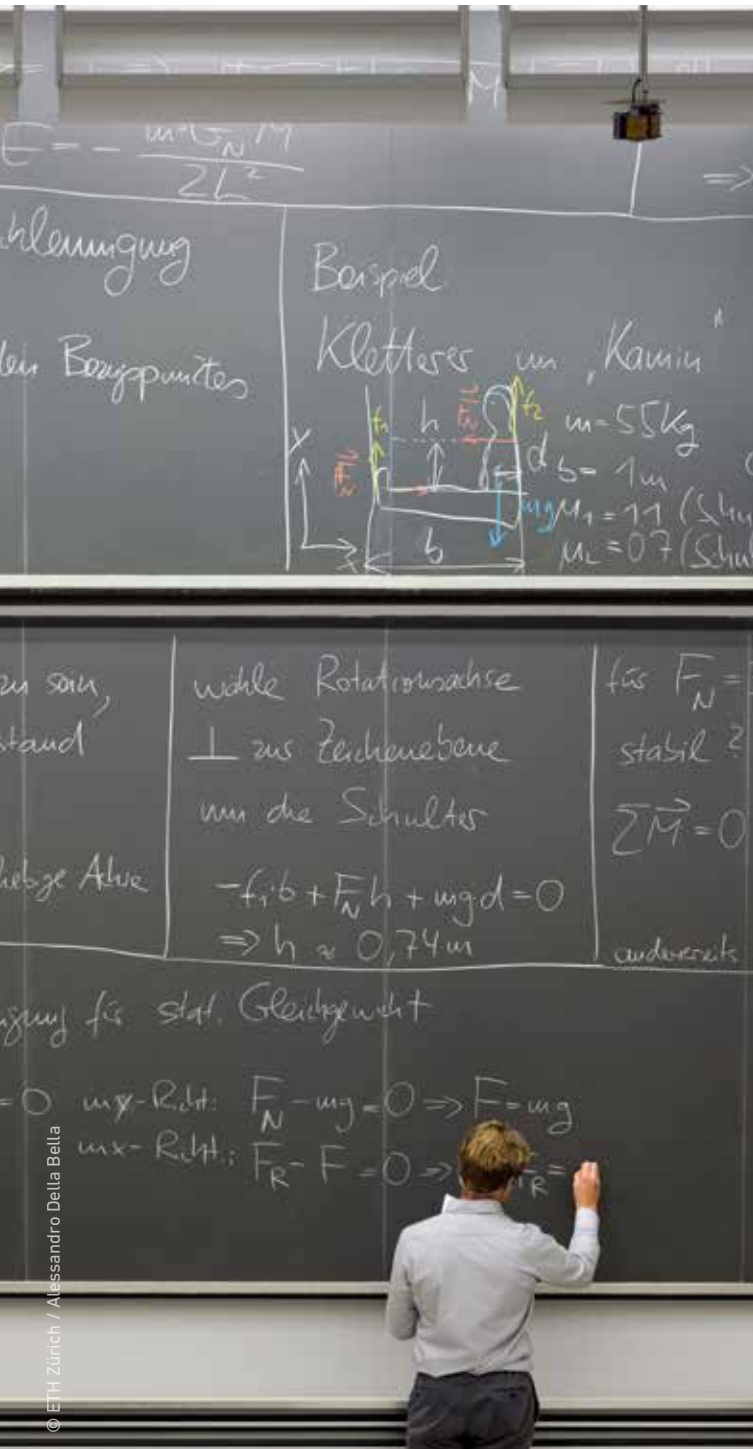 E = - m·G_N M / 2L²
=>
hleunigung
den Bezugspunktes
Beispiel
Kletterer im „Kamin"
y
x
f₁
h
F_N
f₂
F_N
d
mg
b
m = 55Kg
b = 1m
μ₁ = 1.1 (Schu
μ₂ = 0.7 (Schul
zu sein,
stand
Achse
wähle Rotationsachse
⊥ zur Zeichenebene
um die Schulter
-f₁·b + F_N h + mg d = 0
=> h ≈ 0,74m
für F_N =
stabil ?
ΣM⃗ = 0
andererseits
gung für stat. Gleichgewicht
= 0 in y-Richt: F_N - mg = 0 => F = mg
in x-Richt.: F_R - F = 0 => F_R =
© ETH Zürich / Alessandro Della Bella